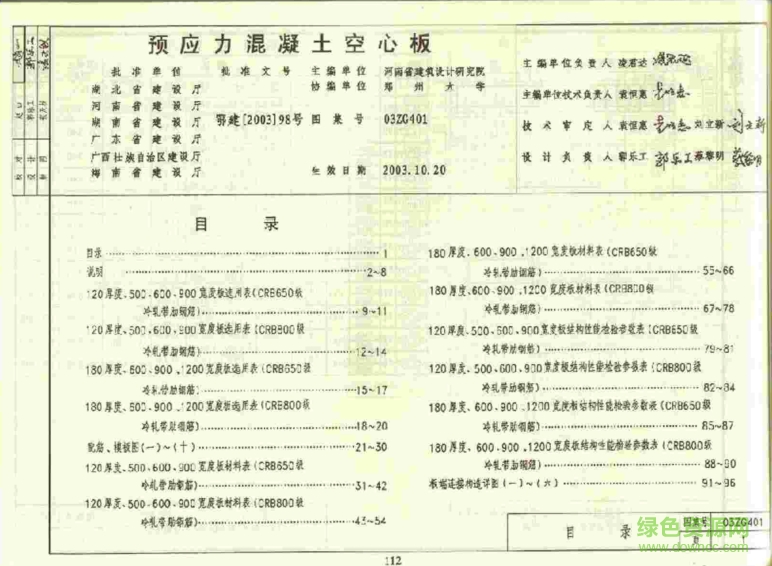 预应力混凝土空心板
批准单位 批准文号 主编单位 河南省建筑设计研究院
湖北省建设厅 协编单位 郑州大学
河南省建设厅
湖南省建设厅 鄂建[2003]98号 图集号 03ZG401
广东省建设厅
广西壮族自治区建设厅
海南省建设厅 生效日期 2003.10.20
主编单位负责人 凌若达
主编单位技术负责人 袁恒惠
技术审定人 袁恒惠 刘立新
设计负责人 郭乐工 蔡黎明
目录
目录 1
说明 2~8
120厚度、500、600、900宽度板选用表(CRB650级
冷轧带肋钢筋) 9~11
120厚度、500、600、900宽度板选用表(CRB800级
冷轧带肋钢筋) 12~14
180厚度、600、900、1200宽度板选用表(CRB650级
冷轧带肋钢筋) 15~17
180厚度、600、900、1200宽度板选用表(CRB800级
冷轧带肋钢筋) 18~20
配筋、模板图(一)~(十) 21~30
120厚度、500、600、900宽度板材料表(CRB650级
冷轧带肋钢筋) 31~42
120厚度、500、600、900宽度板材料表(CRB800级
冷轧带肋钢筋) 43~54
180厚度、600、900、1200宽度板材料表(CRB650级
冷轧带肋钢筋) 55~66
180厚度、600、900、1200宽度板材料表(CRB800级
冷轧带肋钢筋) 67~78
120厚度、500、600、900宽度板结构性能检验参数表(CRB650级
冷轧带肋钢筋) 79~81
120厚度、500、600、900宽度板结构性能检验参数表(CRB800级
冷轧带肋钢筋) 82~84
180厚度、600、900、1200宽度板结构性能检验参数表(CRB650级
冷轧带肋钢筋) 85~87
180厚度、600、900、1200宽度板结构性能检验参数表(CRB800级
冷轧带肋钢筋) 88~90
板端连接构造详图(一)~(六) 91~96
目录 图集号 03ZG401
页 1
112
绿色资源网
www.downcc.com